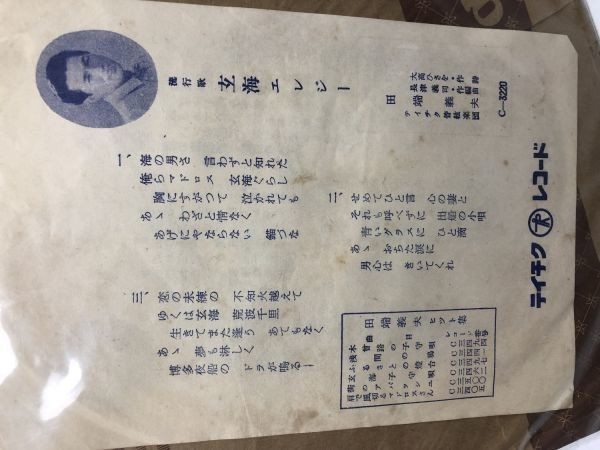 流行歌 玄海エレジー
大高ひさを・作詞
長津義司・作編曲
田端義夫
テイチク管絃楽団
C—3220
一、海の男さ 言わずと知れた
俺らマドロス 玄海ぐらし
胸にすがつて 泣かれても
あゝ わざと情なく
あげにやならない 錨づな
二、せめてひと言 心の妻と
それも呼べずに 出船の小唄
青いグラスに ひと滴
あゝ おちた涙に
男心は きいてくれ
三、恋の未練の 不知火越えて
ゆくは玄海 荒波千里
生きてまた逢う あてもなく
あゝ 夢も淋しく
博多夜船の ドラが鳴る—
田端義夫 ヒツト集
テイチク レコード